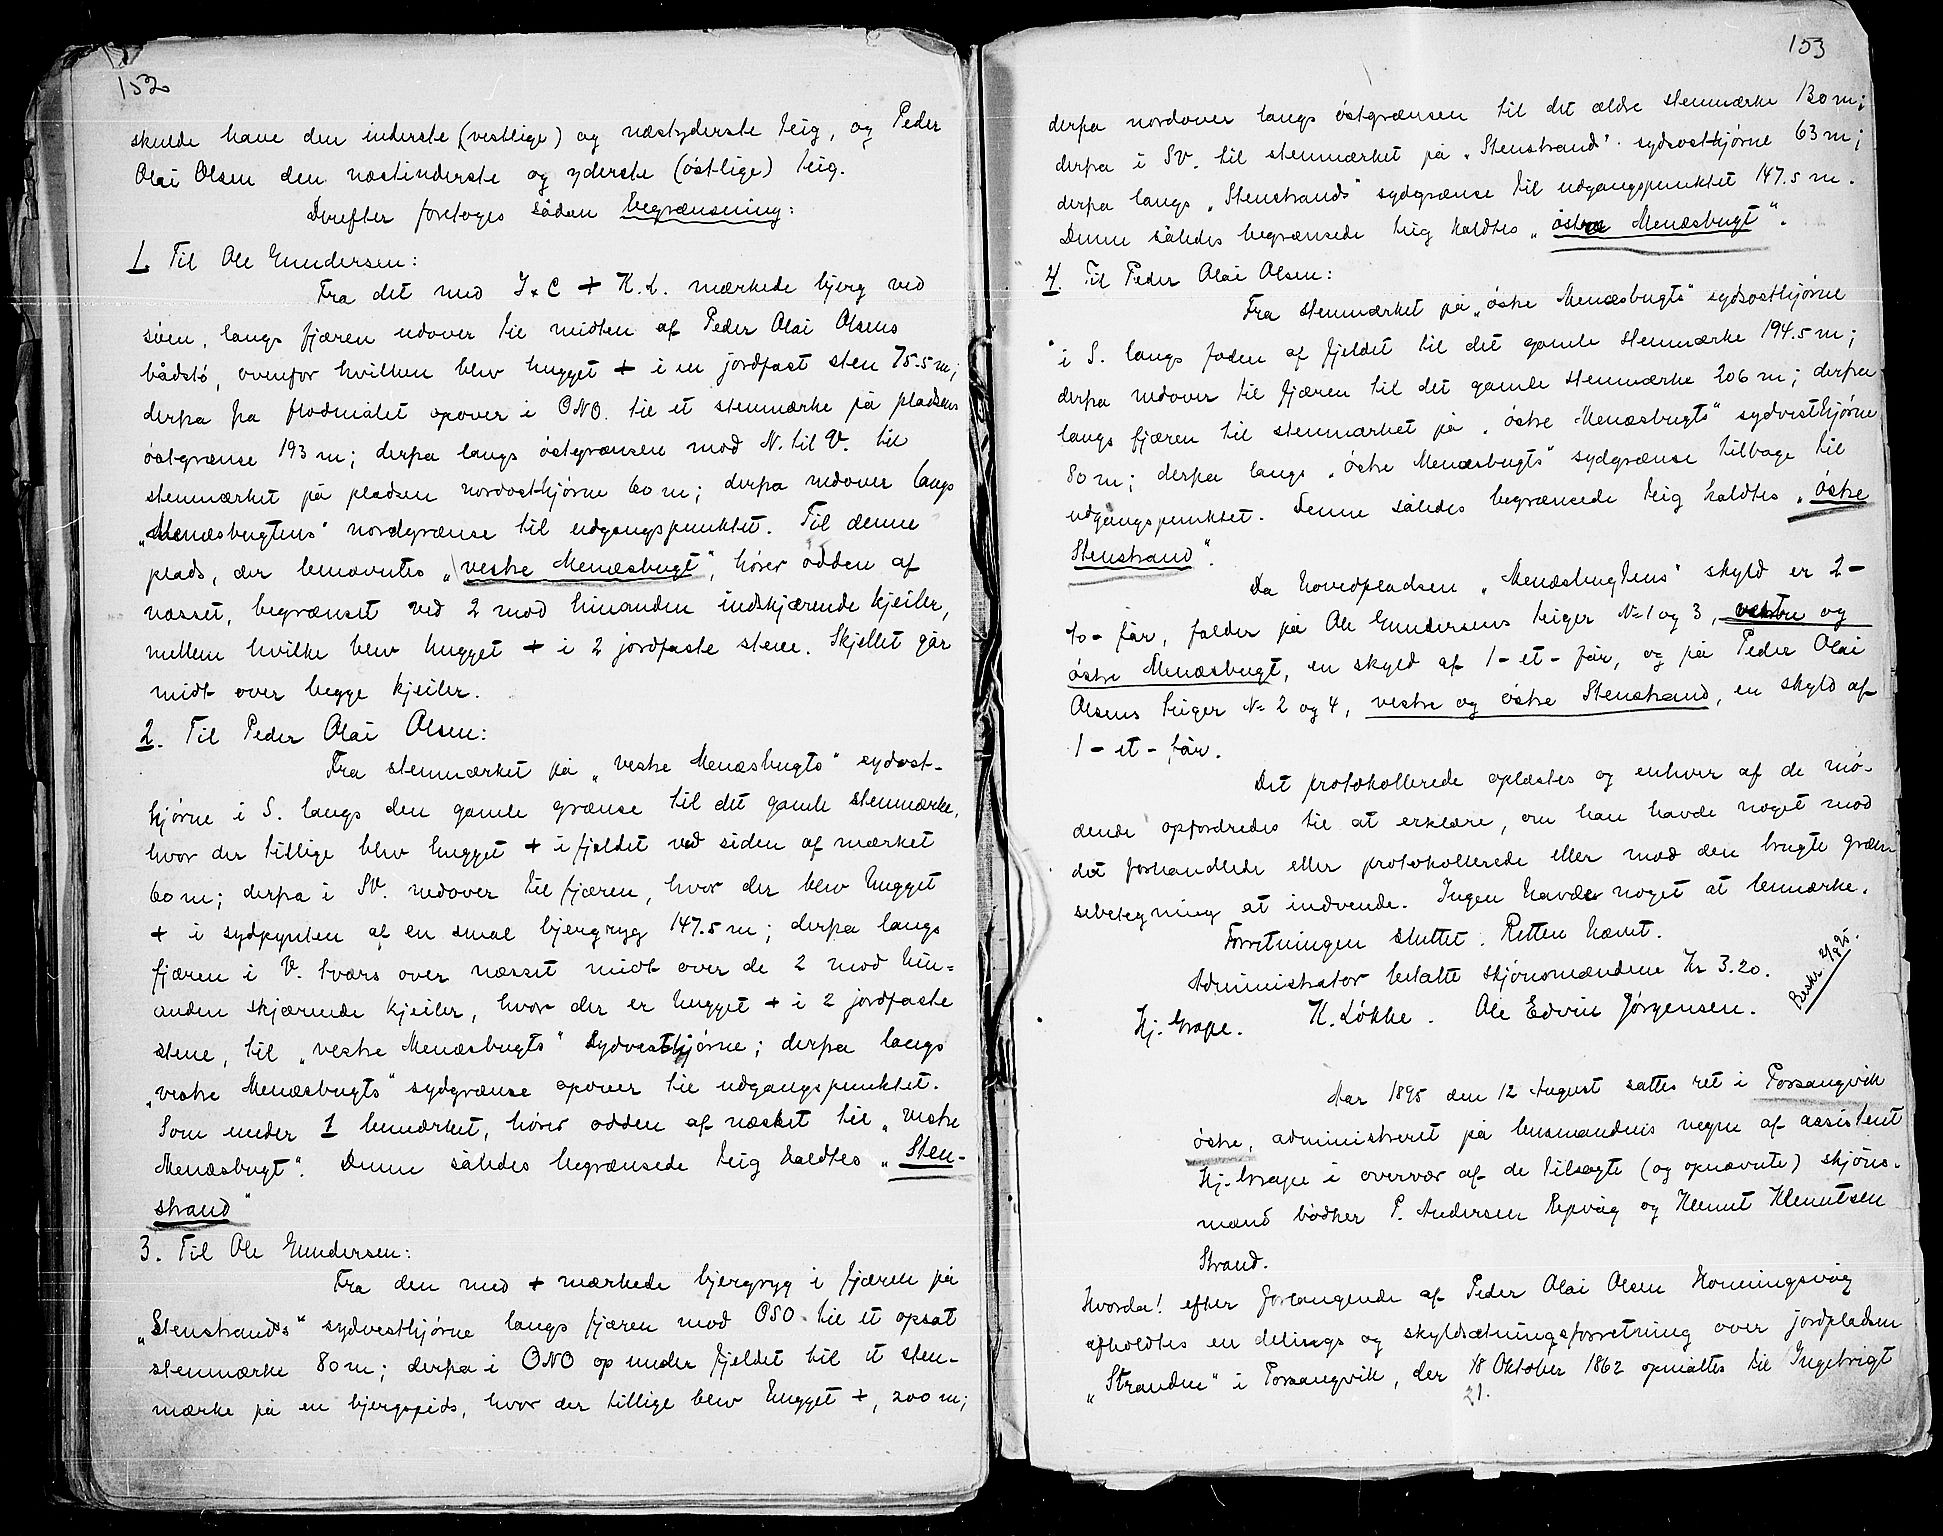 152
skulde have den inderste (vestlige) og næstyderste teig, og Peder
Olai Olsen den næstinderste og yderste (østlige) teig.
Derefter foretoges sådan begrænsning:
1. Til Ole Gundersen:
Fra det med I × C + H. L. mærkede bjerg ved
søen, langs fjæren udover til midten af Peder Olai Olsens
bådstø, ovenfor hvilken blev hugget + i en jordfast sten 75.5 m;
derfra fra flodmålet opover i ONO. til et stenmærke på pladsens
østgrænse 193 m; derfra langs østgrænsen mod N. til V. til
stenmærket på pladsen nordosthjørne 60 m; derfra nedover langs
„Menæsbugtens" nordgrænse til udgangspunktet. Til denne
plads, der benævntes „vestre Menæsbugt", hører odden af
næsset, begrænset ved 2 mod hinanden indskjærende kjeiler,
mellem hvilke blev hugget + i 2 jordfaste stene. Skjellet går
midt over begge kjeiler.
2. Til Peder Olai Olsen:
Fra stenmærket på „vestre Menæsbugts" sydost-
hjørne i S. langs den gamle grænse til det gamle stenmærke,
hvor der tillige blev hugget + i fjeldet ved siden af mærket
60 m; derfra i SV. nedover til fjæren, hvor der blev hugget
+ i sydpynten af en smal bjergryg 147.5 m; derfra langs
fjæren i V. tværs over næsset midt over de 2 mod hin-
anden skjærende kjeiler, hvor der er hugget + i 2 jordfaste
stene, til „vestre Menæsbugts" sydvesthjørne; derfra langs
„vestre Menæsbugts" sydgrænse opover til udgangspunktet.
Som under 1 bemærket, hører odden af næsset til „vestre
Menæsbugt". Denne således begrænsede teig kaldtes „Sten-
strand"
3. Til Ole Gundersen:
Fra den med + mærkede bjergryg i fjæren på
„Stenstrands" sydvesthjørne langs fjæren mod OSO. til et opsat
stenmærke 80 m; derfra i ONO op under fjeldet til et sten-
mærke på en bjergspids, hvor der tillige blev hugget +, 200 m;
153
derfra nordover langs østgrænsen til det ældre stenmærke 130 m;
derfra i SV. til stenmærket på „Stenstrand" sydosthjørne 63 m;
derfra langs „Stenstrands" sydgrænse til udgangspunktet 147.5 m.
Denne således begrænsede teig kaldtes „østre Menæsbugt".
4. Til Peder Olai Olsen:
Fra stenmærket på „østre Menæsbugts" sydosthjørne
i S. langs foden af fjeldet til det gamle stenmærke 194.5 m;
derfra nedover til fjæren til det gamle stenmærke 206 m; derfra
langs fjæren til stenmærket på „østre Menæsbugts" sydvesthjørne
80 m; derfra langs „østre Menæsbugts" sydgrænse tilbage til
udgangspunktet. Denne således begrænsede teig kaldtes „østre
Stenstrand".
Da hovedpladsen „Menæsbugtens" skyld er 2-
to- får, falder på Ole Gundersens teiger № 1 og 3, vestre og
østre Menæsbugt, en skyld af 1- et- får, og på Peder Olai
Olsens teiger № 2 og 4, vestre og østre Stenstrand, en skyld af
1- et- får.
Det protokollerede oplæstes og enhver af de mø-
dende opfordredes til at erklære, om han havde noget mod
det forhandlede eller protokollerede eller mod den brugte græn-
sebetegning at indvende. Ingen havde noget at bemærke.
Forretningen sluttet. Retten hævet.
Administrator betalte skjønsmændene Kr 3.20.
Hj. Grape. H. Løkke. Ole Edvin Jørgensen.
Beskr 2/9 95.
Aar 1895 den 12 August sattes ret i Porsangvik
østre, administreret på lensmandens vegne af assistent
Hj. Grape i overvær af de tilsagte (og opnævnte) skjøns-
mænd bødker P. Andersen Repvåg og Klemet Klemetsen
Strand.
Hvorda! efter forlangende af Peder Olai Olsen Honningsvåg
afholdtes en delings og skyldsætningsforretning over jordpladsen
„Stranden" i Porsangvik, der 18 Oktober 1862 opmåltes til Ingebrigt
21.